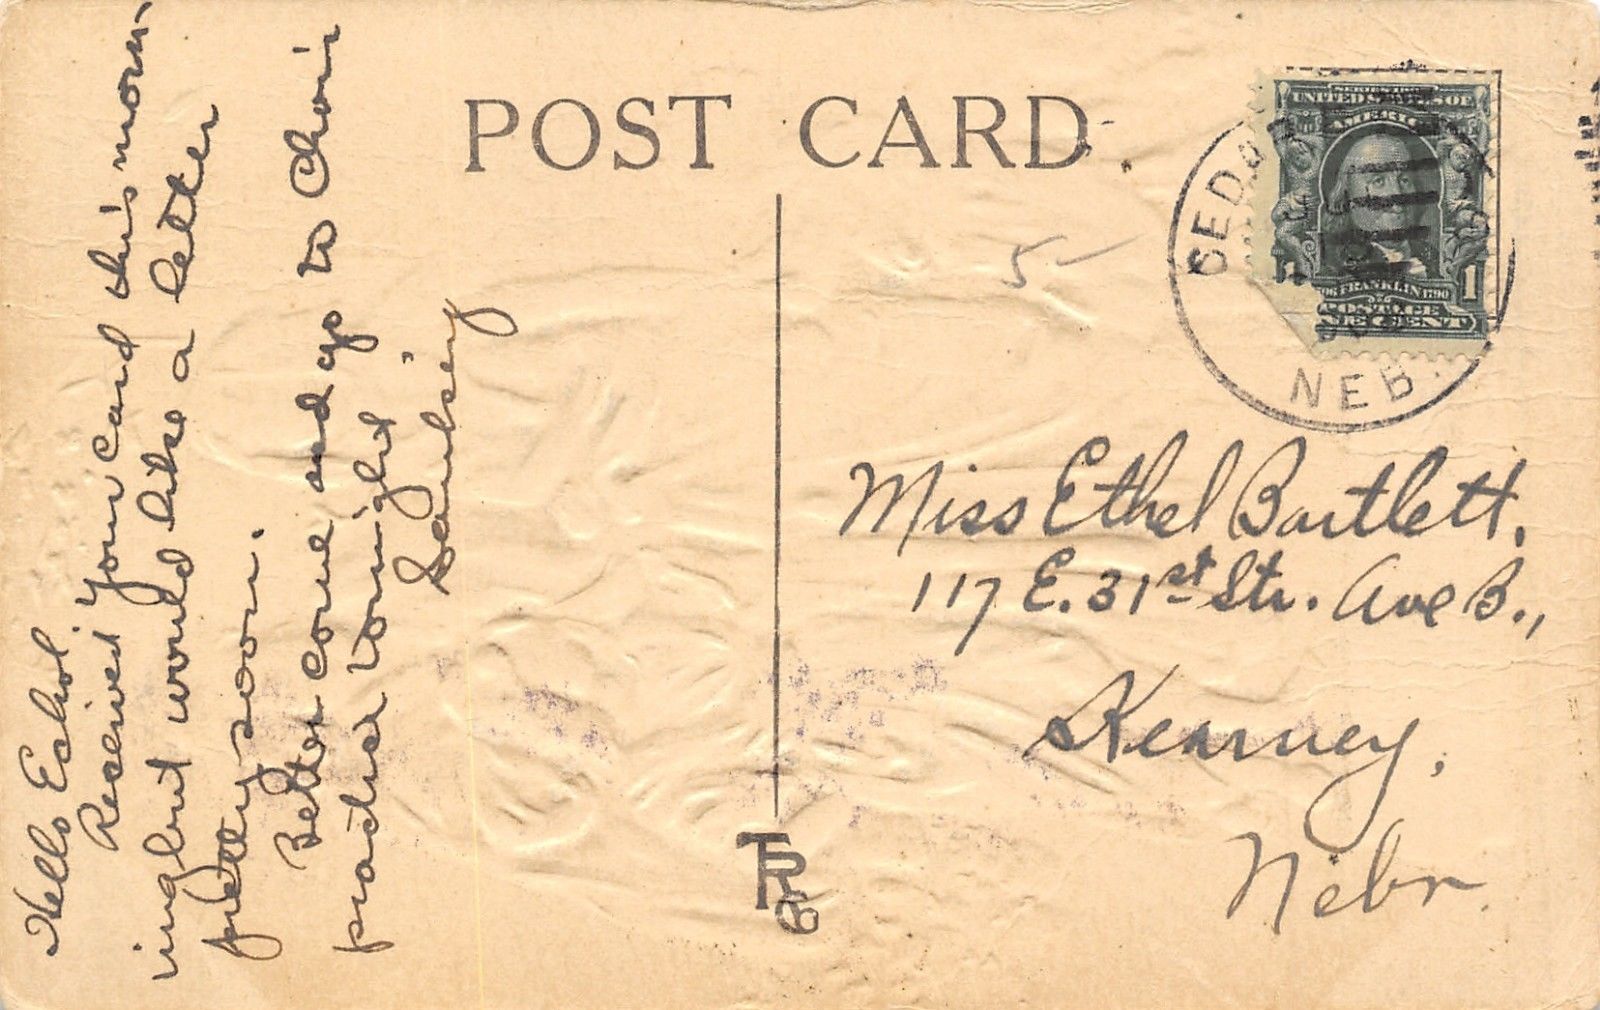 POST CARD
Hello Eshol.
Received your card this morn
ing but would like a letter
pretty soon.
Better come and go to choir
practise tonight.
UNITED STATES OF
AMERICA
FRANKLIN 1790
POSTAGE
ONE CENT
1
CEDAR
NEB.
5-
Miss Ethel Bartlett,
117 E. 31st Str. Ave B.,
Kearney,
Nebr.